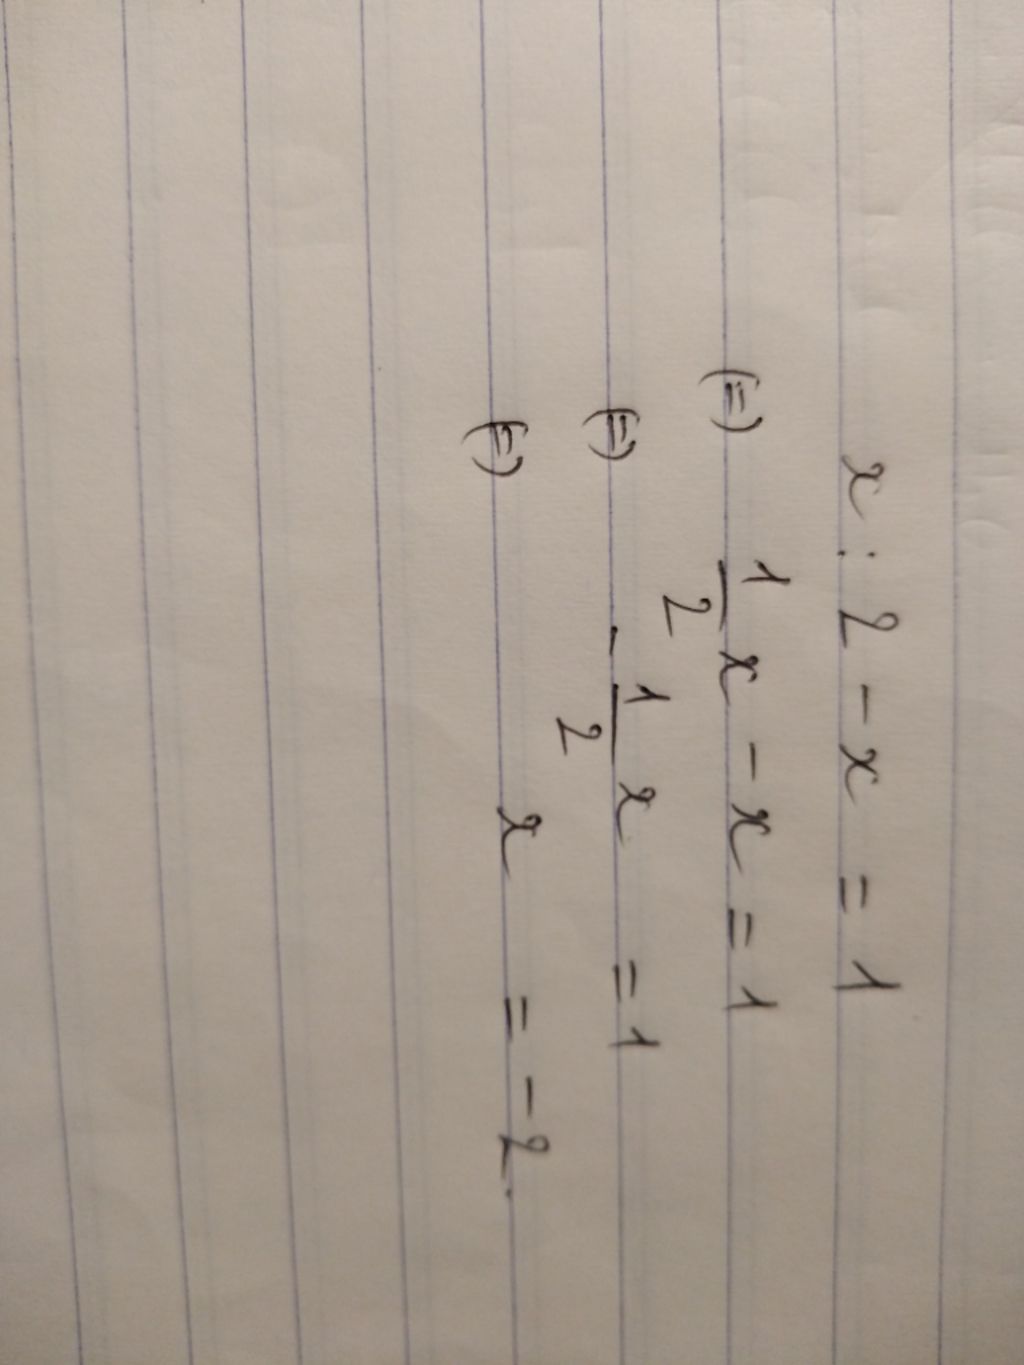 x : 2 - x = 1
(=) 1/2 x - x = 1
(=) - 1/2 x = 1
(=) x = -2.